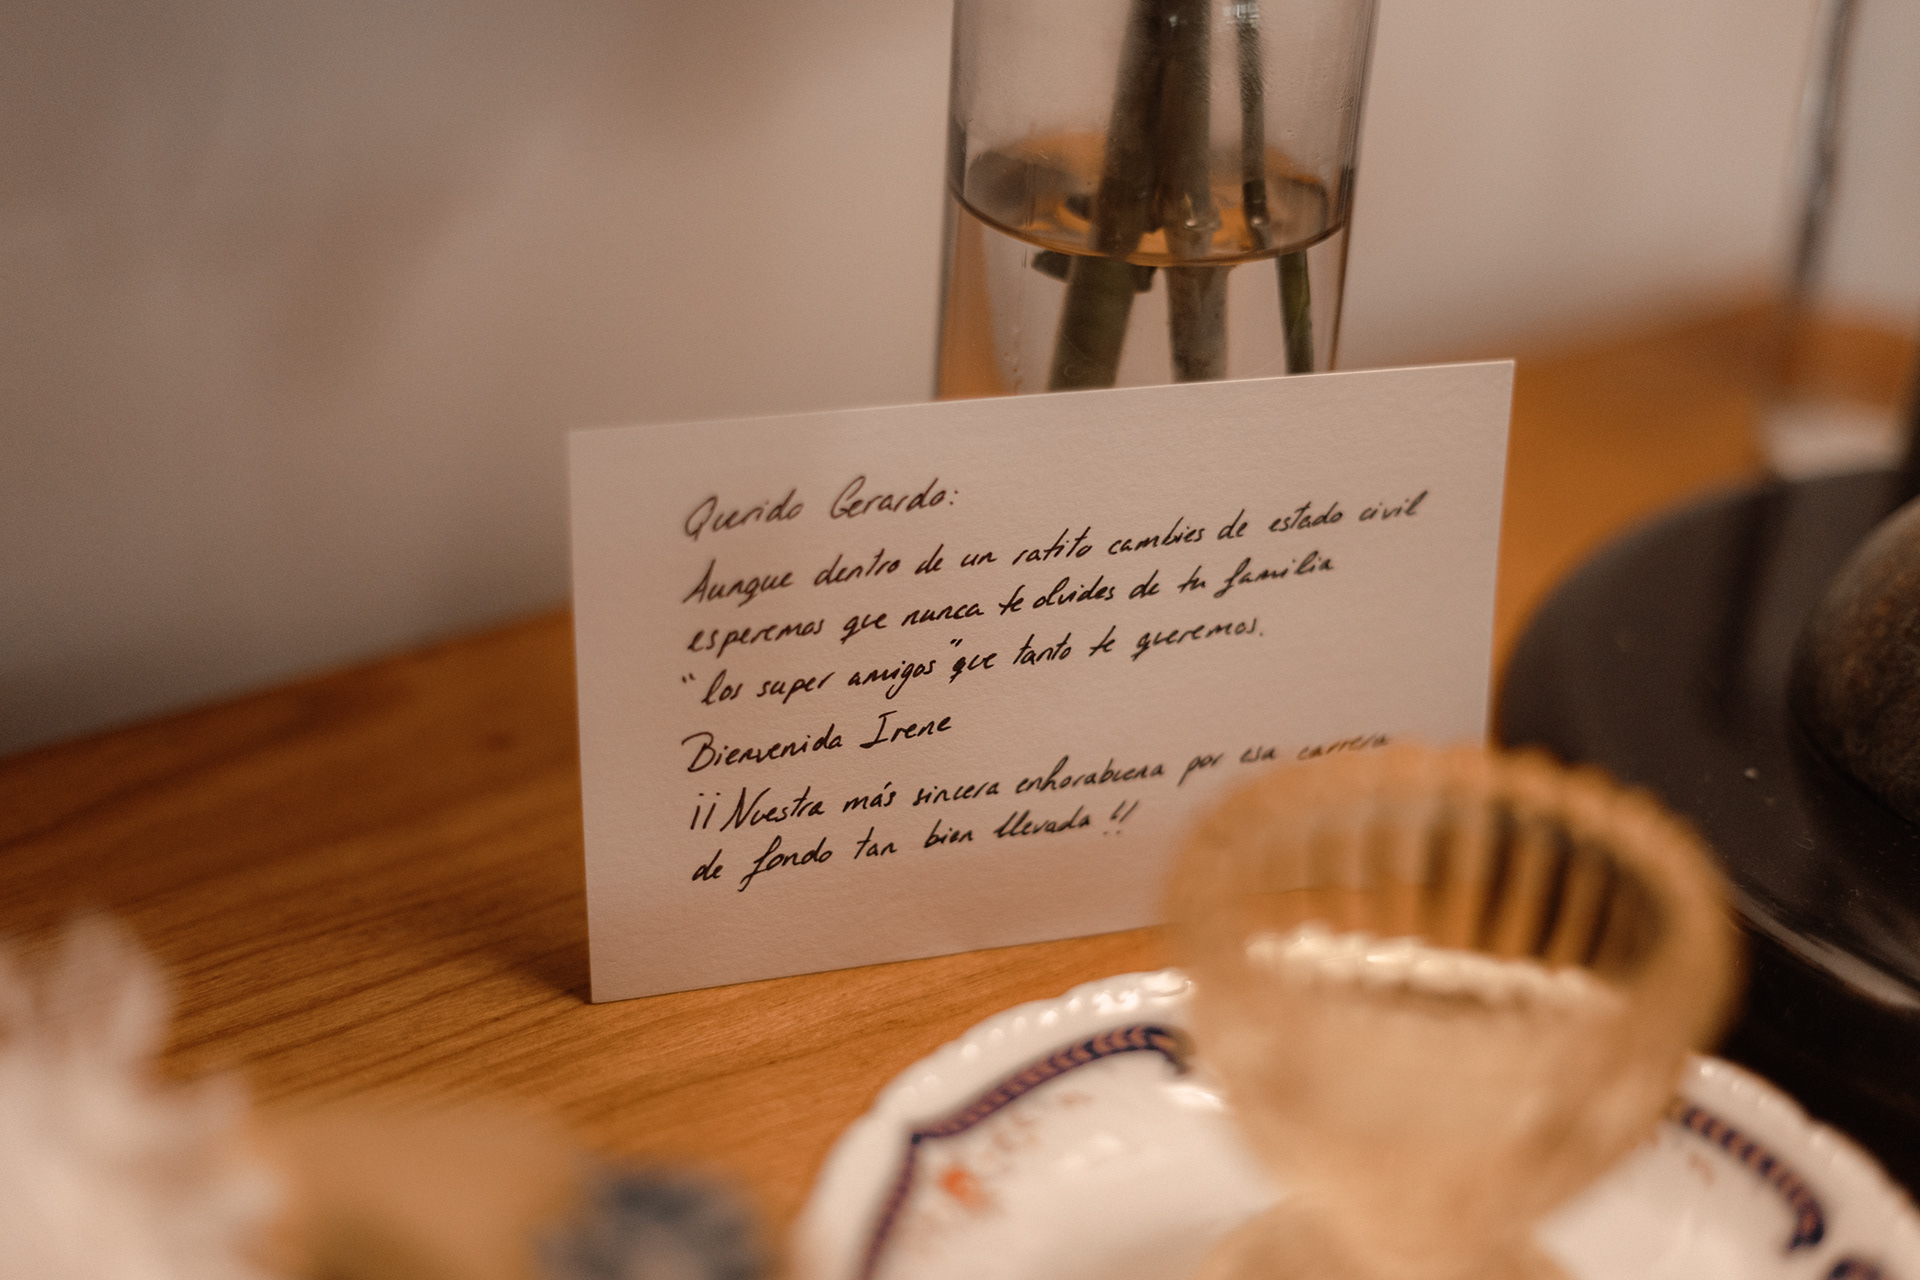 Querido Gerardo:
Aunque dentro de un ratito cambies de estado civil
esperemos que nunca te olvides de tu familia
"los super amigos" que tanto te queremos.
Bienvenida Irene
¡¡Nuestra más sincera enhorabuena por esa carrera
de fondo tan bien llevada!!